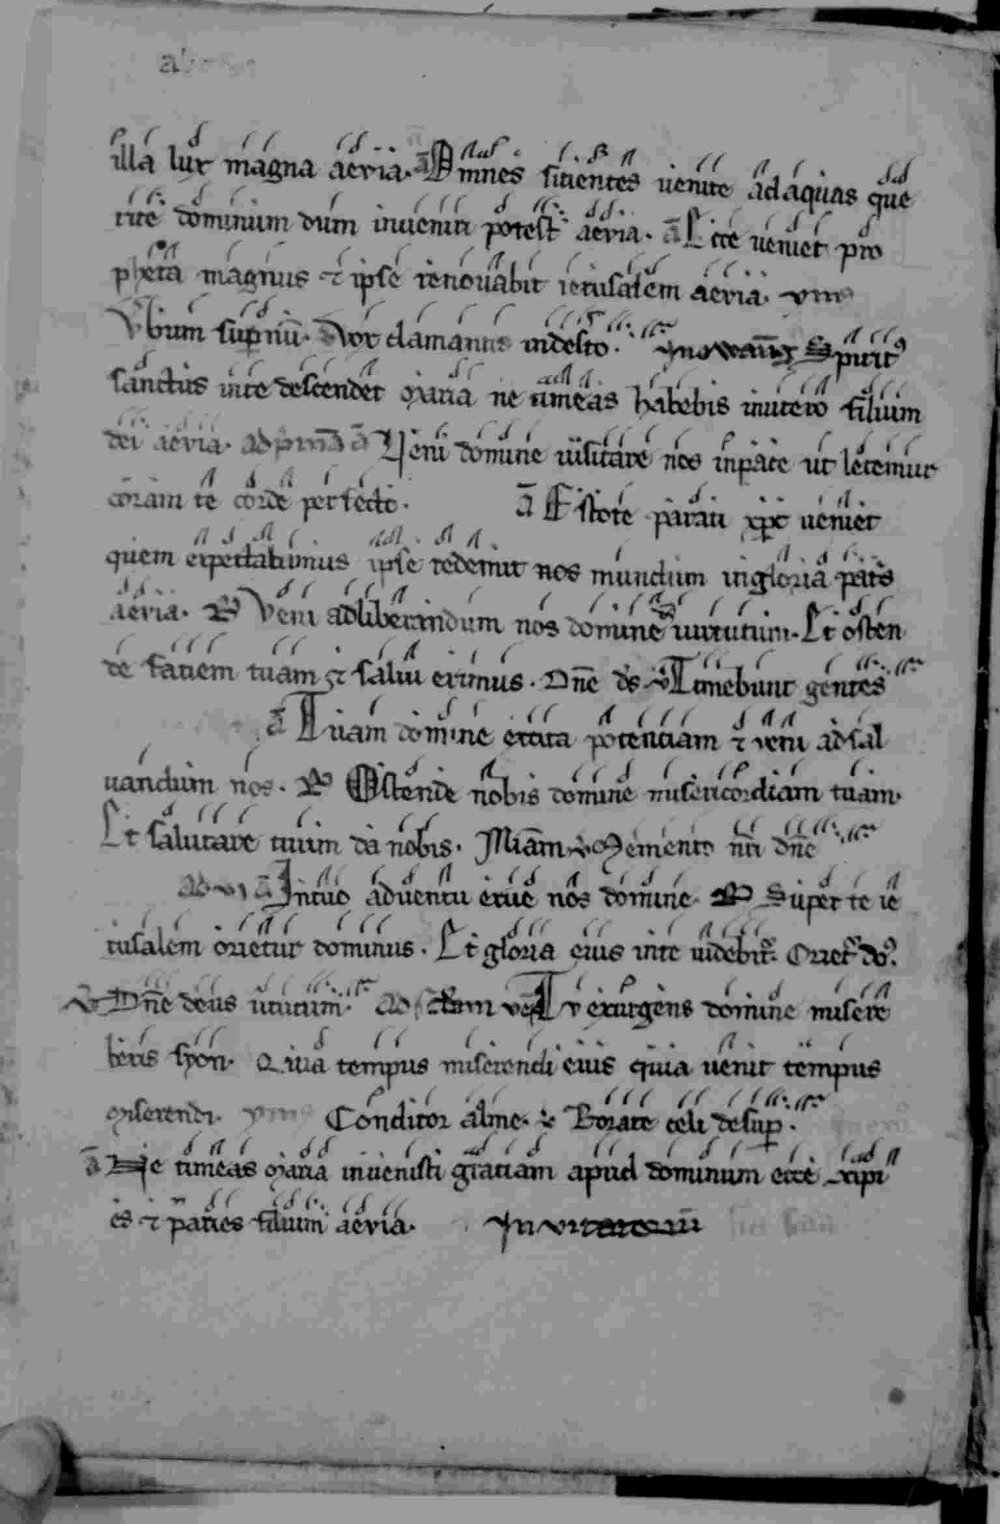 illa lux magna aevia. ā Omnes sitientes venite ad aquas que
rite dominum dum inveniri potest aevia. ā Ecce veniet pro
pheta magnus ⁊ ipse renovabit ierusalem aevia. ymꝰ
Vbum supnū. Vox clamantis in desto. Spiritꝰ
sanctus in te descendet maria ne timeas habebis in utero filium
dei aevia. ad pmā ā Veni domine visitare nos in pace ut letemur
coram te corde perfecto. ā Estote parati xpc veniet
quem expectabimus ipse redemit nos mundum in gloria patis
aevia. ℟ Veni ad liberandum nos domine virtutum. Et osten
de faciem tuam ⁊ salvi erimus. Dn̄e ds ℣ Timebunt gentes
ā Tuam domine excita potenciam ⁊ veni ad sal
vandum nos. ℟ Ostende nobis domine misericordiam tuam.
Et salutare tuum da nobis. Miām ℣ Memento nr̄i dn̄e
ad vi ā In tuo adventu erue nos domine. ℟ Super te ie
rusalem orietur dominus. Et gloria eius in te videbit. Oriet dōꝰ.
℣ Dn̄e deus virtutum. Tu exurgens domine misere
beris syon. Quia tempus miserendi eius quia venit tempus
miserendi. ymꝰ Conditor alme. ℣ Rorate celi desup.
ā Ne timeas maria invenisti gratiam apud dominum ecce xipi
es ⁊ paries filium aevia. Invitatoriū